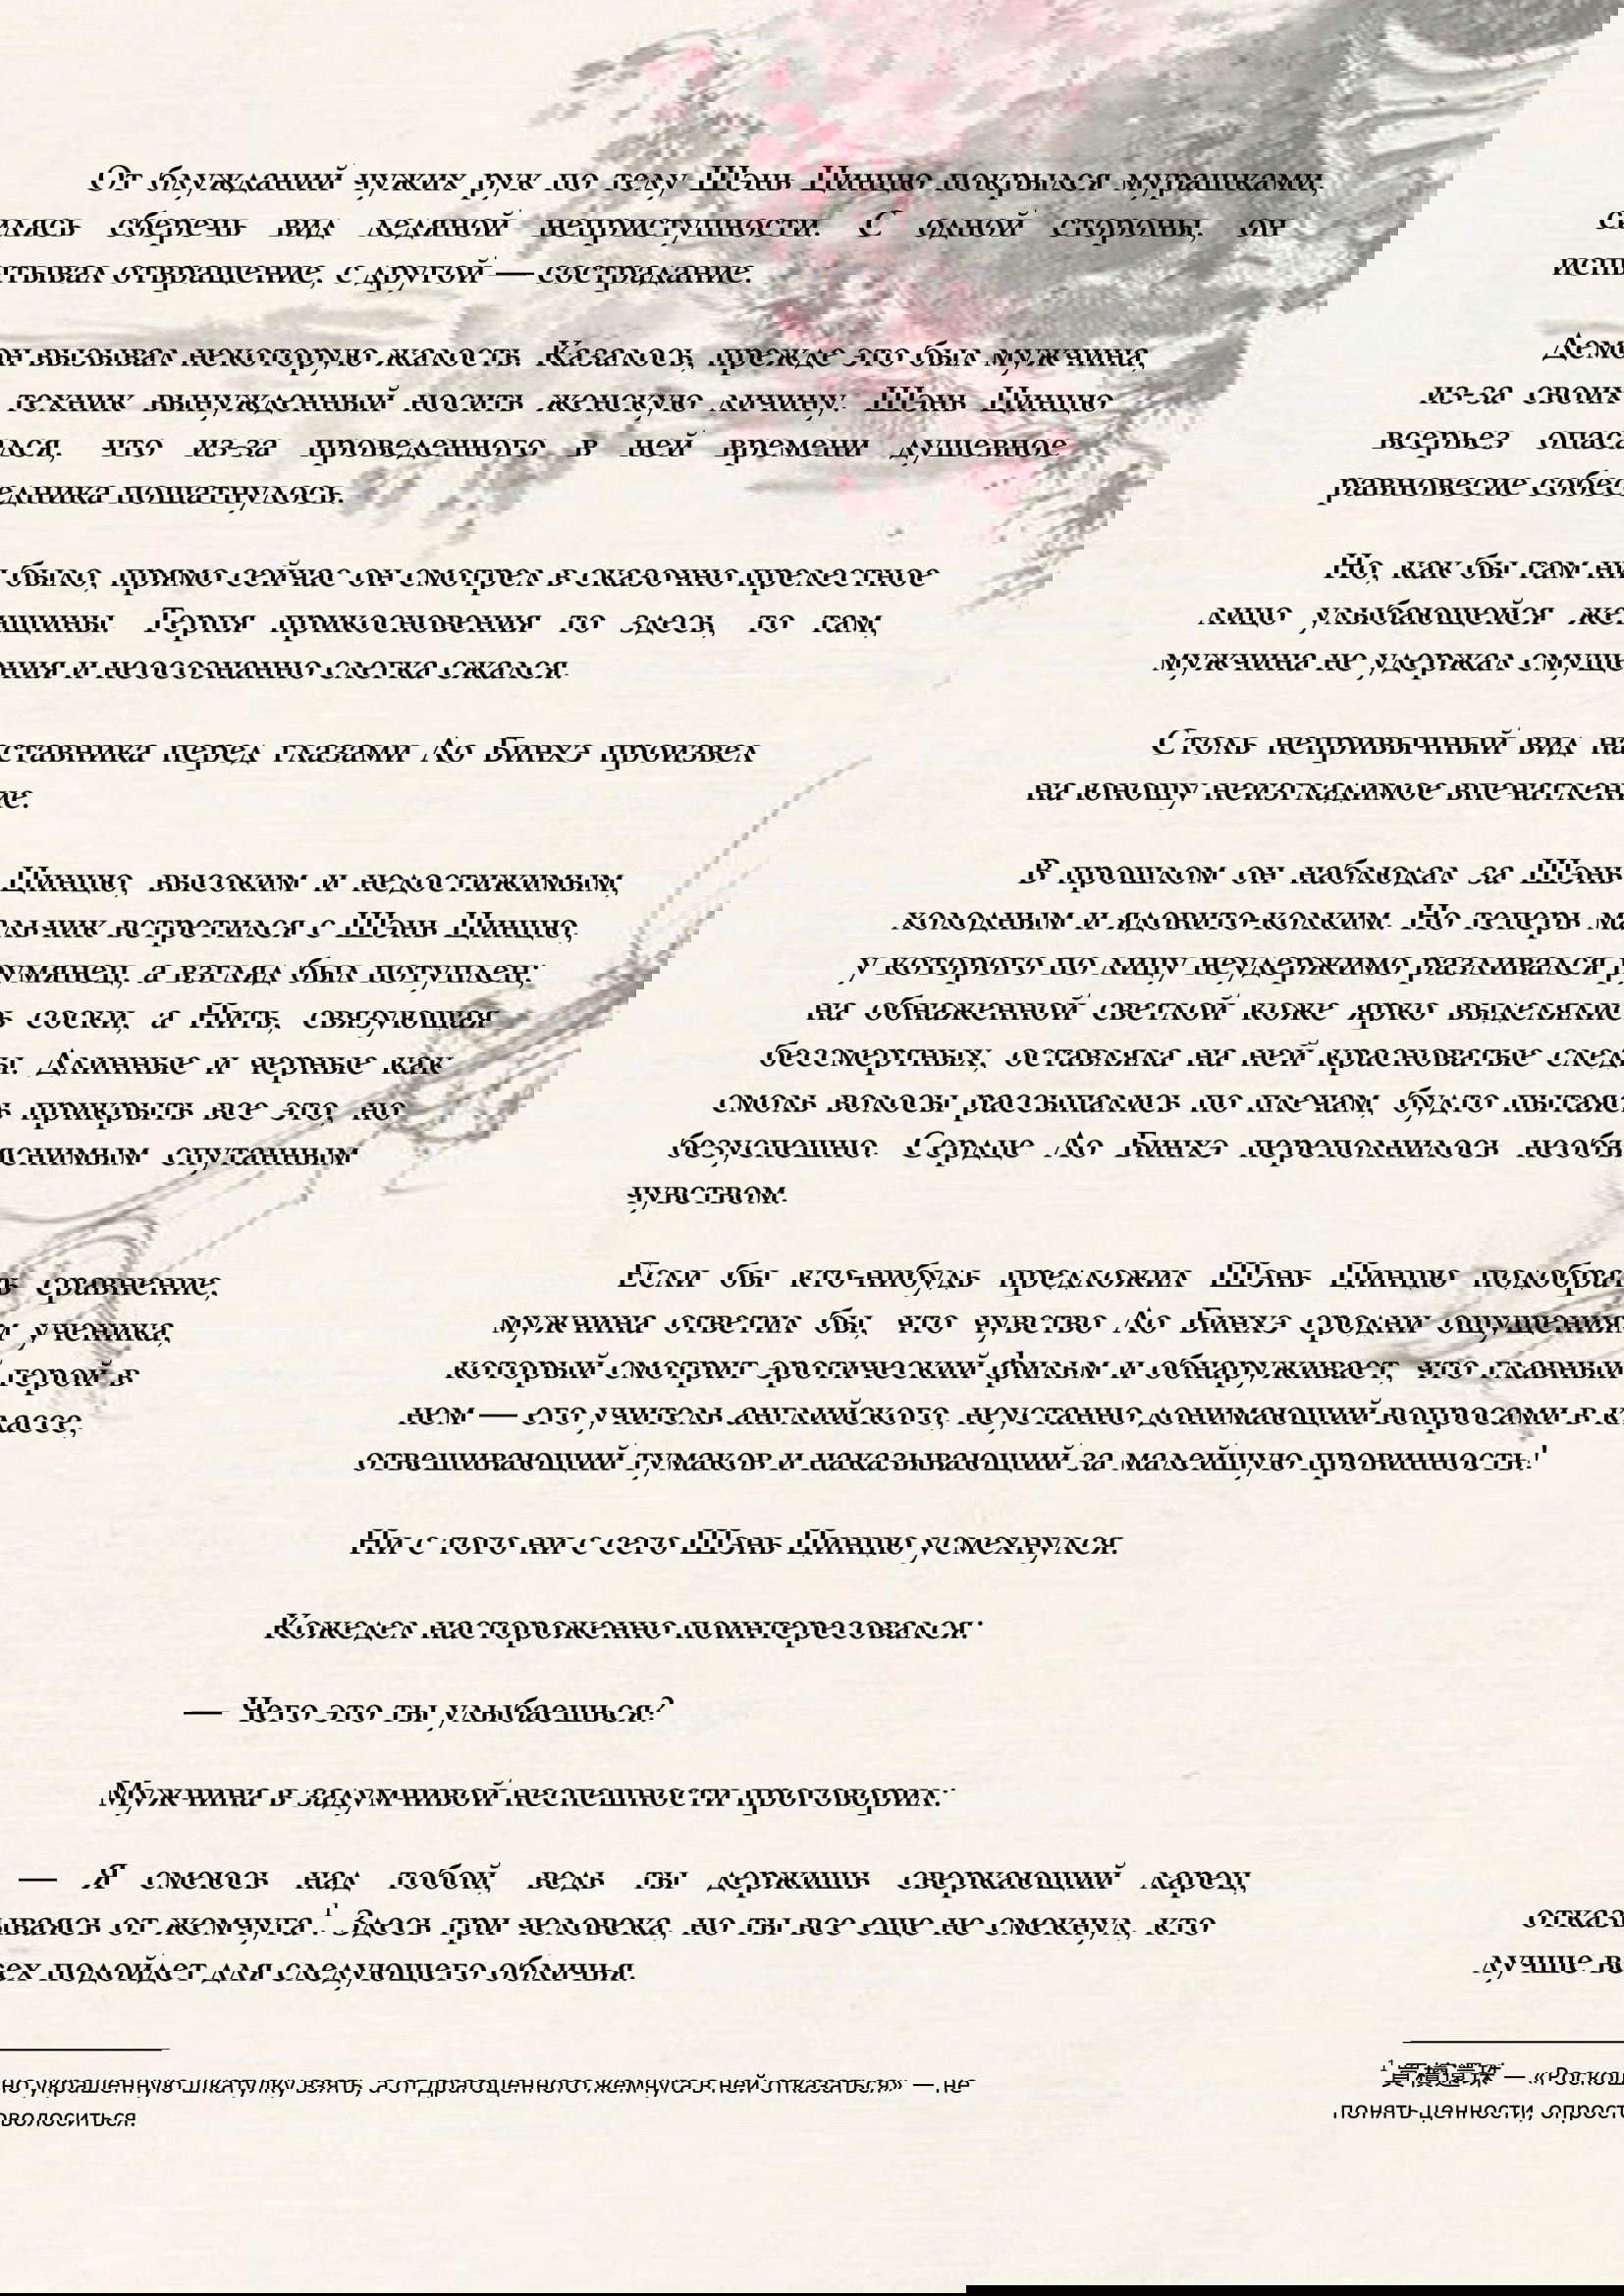 От блужданий чужих рук по телу Шэнь Цинцю покрылся мурашками,
силясь сберечь вид ледяной неприступности. С одной стороны, он
испытывал отвращение, с другой — сострадание.
Демон вызывал некоторую жалость. Казалось, прежде это был мужчина,
из-за своих техник вынужденный носить женскую личину. Шэнь Цинцю
всерьез опасался, что из-за проведенного в ней времени душевное
равновесие собеседника пошатнулось.
Но, как бы там ни было, прямо сейчас он смотрел в сказочно прелестное
лицо улыбающейся женщины. Терпя прикосновения то здесь, то там,
мужчина не удержал смущения и неосознанно слегка сжался.
Столь непривычный вид наставника перед глазами Ло Бинхэ произвел
на юношу неизгладимое впечатление.
В прошлом он наблюдал за Шэнь Цинцю, высоким и недостижимым,
холодным и ядовито-колким. Но теперь мальчик встретился с Шэнь Цинцю,
у которого по лицу неудержимо разливался румянец, а взгляд был потуплен;
на обнаженной светлой коже ярко выделялись соски, а Нить, связующая
бессмертных, оставляла на ней красноватые следы. Длинные и черные как
смоль волосы рассыпались по плечам, будто пытаясь прикрыть все это, но
безуспешно. Сердце Ло Бинхэ переполнилось необъяснимым спутанным
чувством.
Если бы кто-нибудь предложил Шэнь Цинцю подобрать сравнение,
мужчина ответил бы, что чувство Ло Бинхэ сродни ощущениям ученика,
который смотрит эротический фильм и обнаруживает, что главный герой в
нем — его учитель английского, неустанно донимающий вопросами в классе,
отвешивающий тумаков и наказывающий за малейшую провинность!
Ни с того ни с сего Шэнь Цинцю усмехнулся.
Кожедел настороженно поинтересовался:
— Чего это ты улыбаешься?
Мужчина в задумчивой неспешности проговорил:
— Я смеюсь над тобой, ведь ты держишь сверкающий ларец,
отказываясь от жемчуга¹. Здесь три человека, но ты все еще не смекнул, кто
лучше всех подойдет для следующего обличья.
¹ 買櫝還珠 — «Роскошно украшенную шкатулку взять, а от драгоценного жемчуга в ней отказаться» — не
понять ценности, опростоволоситься.